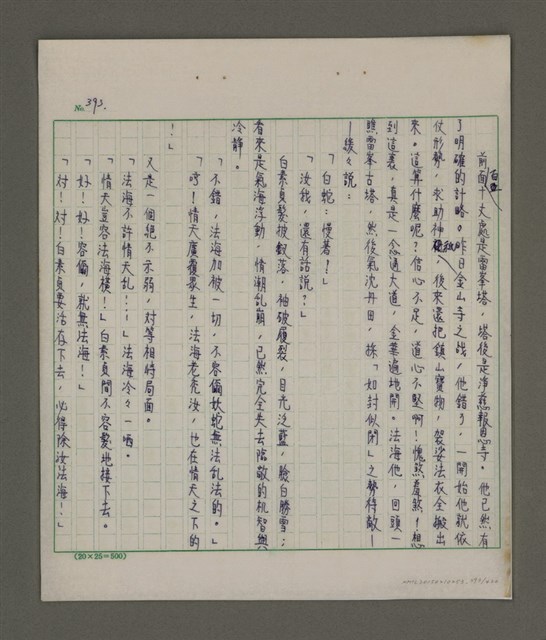 No. 393.
前面百十丈處是雷峯塔，塔後是淨慈報恩寺。他已然有
了明確的計略。昨日金山寺之战，他錯了，一開始他就依
仗形勢，求助神祇，後來还把鎮山寶物，袈裟法衣全搬出
來。这算什麼呢？信心不足，道心不堅啊！愧煞羞煞！想
到這裏，真是一念通大道，金葉遍地開。法海他，回頭一
瞧雷峯古塔，然後氣沈丹田，採「如封似閉」之勢待敵—
—緩々說：
「白蛇：慢著！」
「汝我，還有話說？」
白素貞髮披釵落，袖破履裂，目光泛藍，臉白勝雪；
看來是氣海浮動，情潮乱崩，已然完全失去臨敵的机智與
冷靜。
「不錯，法海加被一切，不容偏妖蛇無法乱法的。」
「哼！情天廣覆眾生，法海老禿汝，也在情天之下的
！」
又是一個絕不示弱，对等相峙局面。
「法海不許情天乱！」法海冷々一哂。
「情天豈容法海橫！」白素貞間不容髮地接下去。
「好！好！容偏，就無法海！」
「对！对！白素貞要活在下去，必得除汝法海！」
(20×25=500)